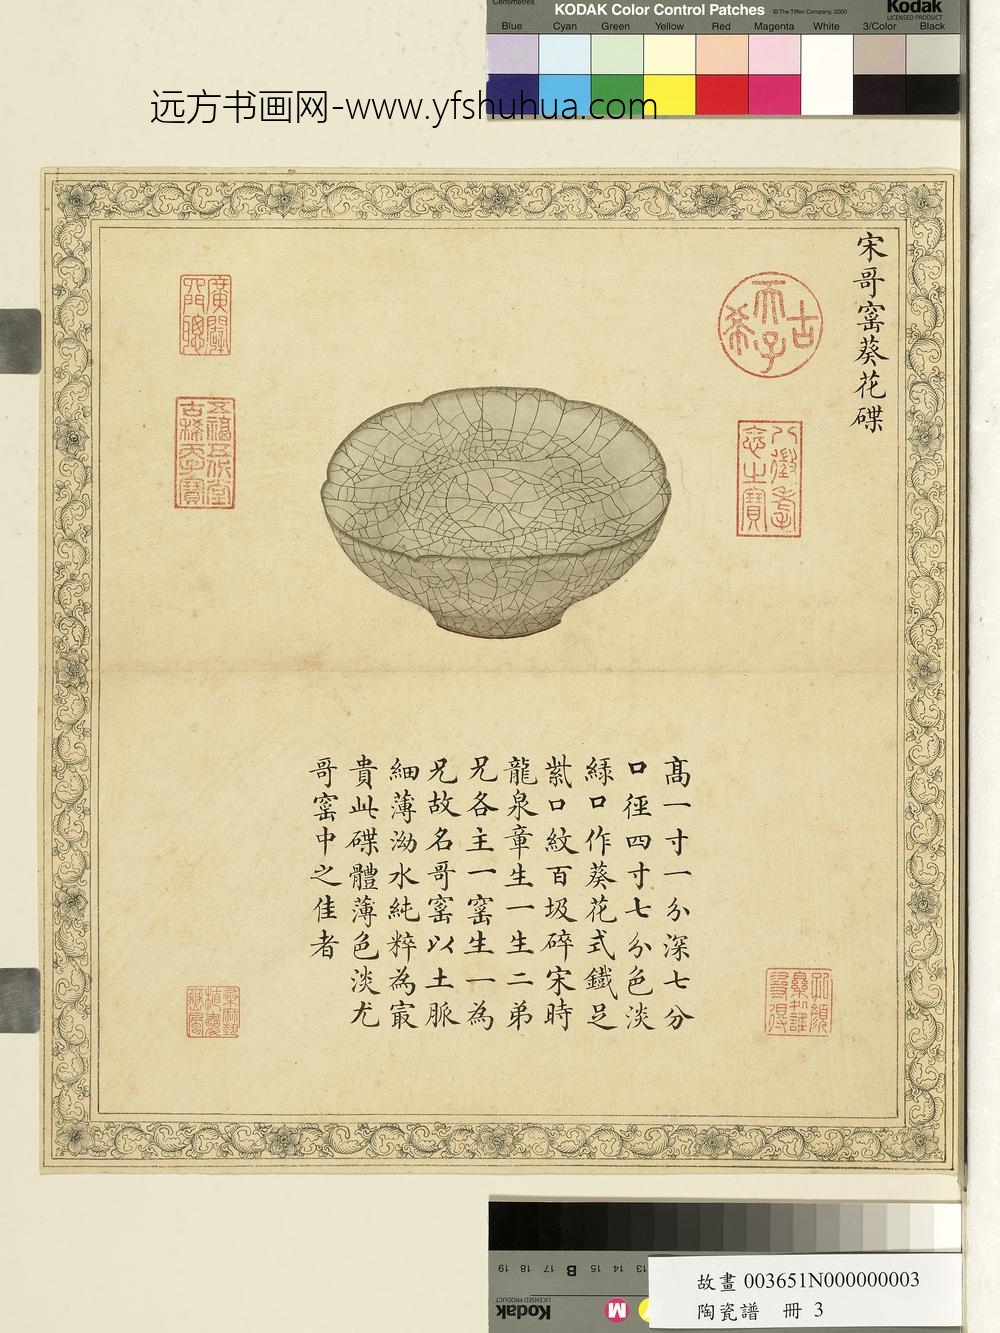 Centimetres
KODAK Color Control Patches
©The Tiffen Company, 2000
Kodak
LICENSED PRODUCT
Blue Cyan Green Yellow Red Magenta White 3/Color Black
远方书画网-www.yfshuhua.com
宋哥窰葵花碟
古希天子
八徵耄念之寶
廣闢四門聰
五福五代堂古稀天子寶
高一寸一分深七分
口徑四寸七分色淡
綠口作葵花式鐵足
紫口紋百圾碎宋時
龍泉章生一生二弟
兄各主一窰生一為
兄故名哥窰以土脈
細薄泑水純粹為㝡
貴此碟體薄色淡尤
哥窰中之佳者
13 14 15 B 17 18 19
Kodak
LICENSED PRODUCT
M
故畫 003651N000000003
陶瓷譜 冊 3